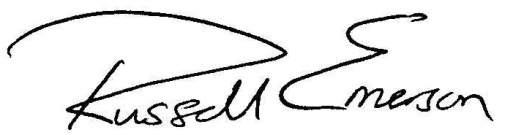 Russell Emerson